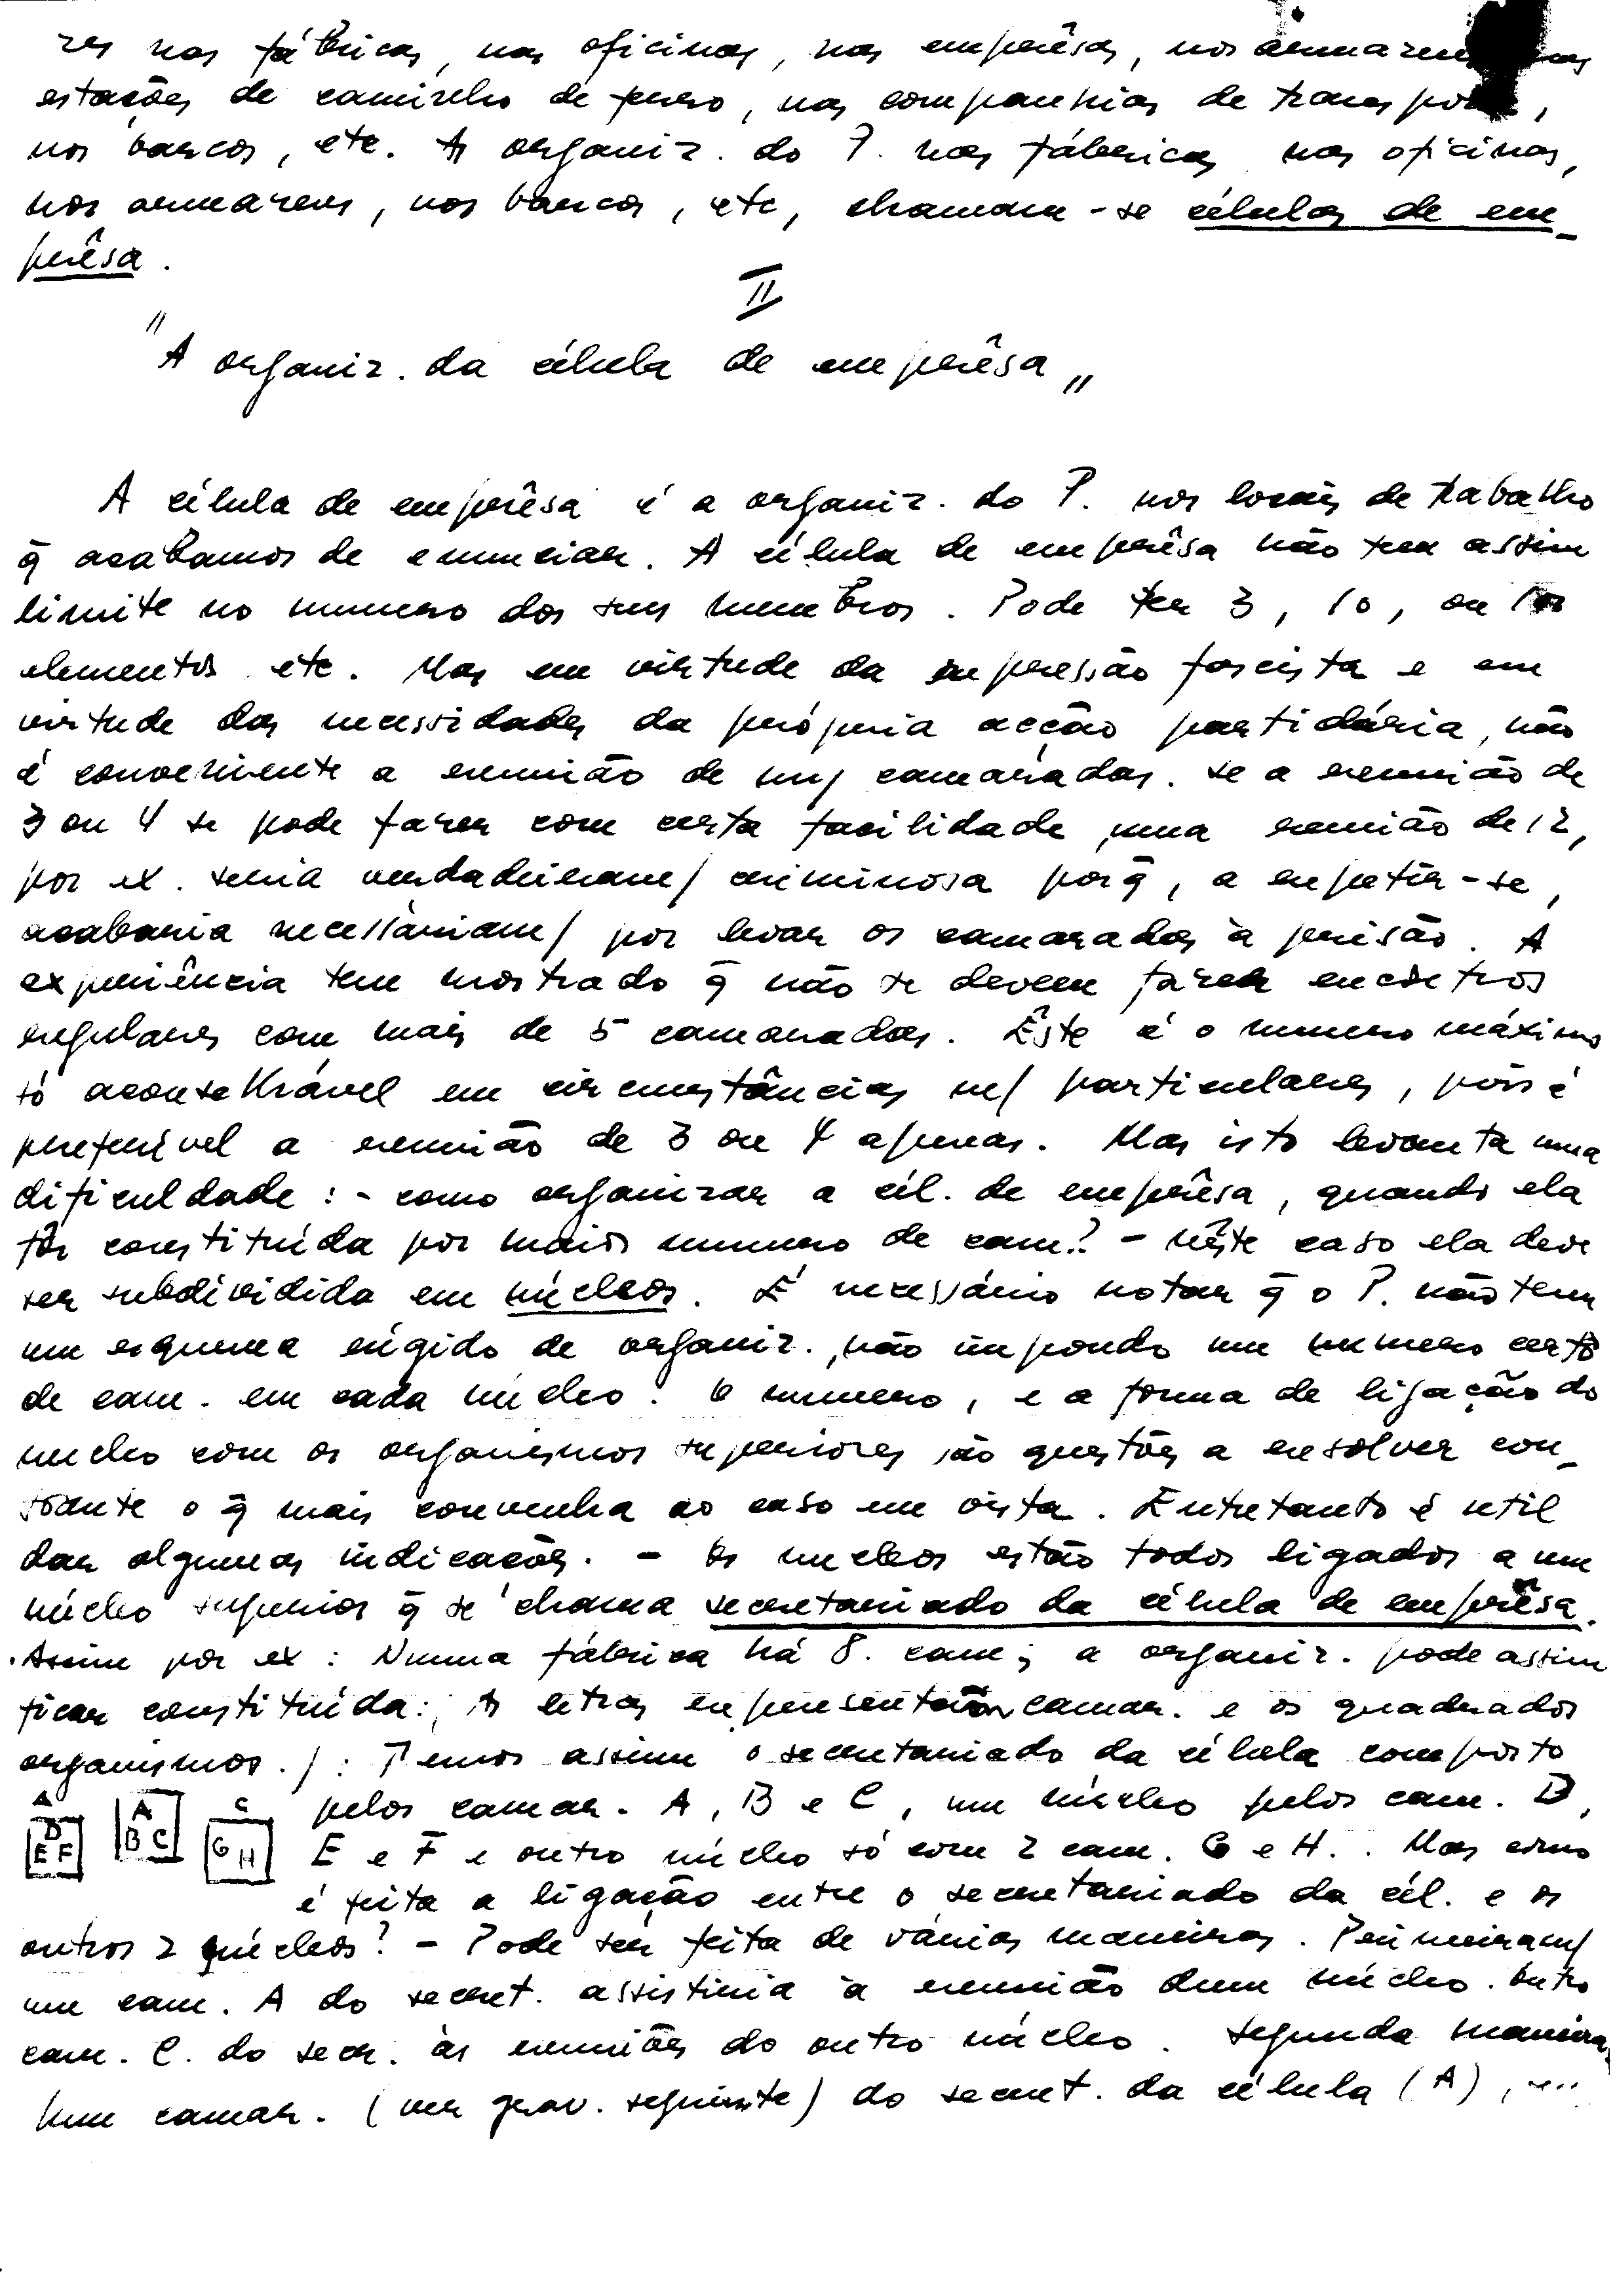 res nas fábricas, nas oficinas, nas emprêsas, nos armazens nas
estações de caminho de ferro, nas companhias de transporte,
nos barcos, etc. As organiz. do P. nas fábricas nas oficinas,
nos armazens, nos bancos, etc, chamam-se células de em_
prêsa.
II
"A organiz. da célula de emprêsa"
A célula de emprêsa é a organiz. do P. nos locais de trabalho
q̄ acabamos de enunciar. A célula de emprêsa não tem assim
limite no numero dos seus membros. Pode ter 3, 10, ou
elementos etc. Mas em virtude da repressão fascista e em
virtude das necessidades da própria acção partidária, não
é conveniente a reunião de m/ camaradas. Se a reunião de
3 ou 4 se pode fazer com certa facilidade, uma reunião de 12,
por ex. seria verdadeiram/ criminosa porq̄, a repetir-se,
acabaria necessàriam/ por levar os camaradas à prisão. A
experiência tem mostrado q̄ não se devem fazer encõtros
regulares com mais de 5 camaradas. Êste é o numero máximo
só aconselhável em circunstâncias m/ particulares, pois é
preferível a reunião de 3 ou 4 apenas. Mas isto levanta uma
dificuldade: - como organizar a cél. de emprêsa, quando ela
fôr constituída por maior numero de cam.? - Nêste caso ela deve
ser subdividida em núcleos. É necessário notar q̄ o P. não tem
um esquema rígido de organiz., não impondo um numero certo
de cam. em cada núcleo. O numero, e a forma de ligação do
nucleo com os organismos superiores são questões a resolver con_
soante o q̄ mais convenha ao caso em vista. Entretanto é util
dar algumas indicações. - Os nucleos estão todos ligados a um
núcleo superior q̄ se chama secretariado da célula de emprêsa.
Assim por ex: Numa fábrica há 8. cam; a organiz. pode assim
ficar constituída: As letras representarão camar. e os quadrados
organismos.): Temos assim o secretariado da célula composto
A A C pelos camar. A, B e C, um núcleo pelos cam. D,
D E F B C G H E e F e outro núcleo só com 2 cam. G e H.. Mas como
é feita a ligação entre o secretariado da cél. e os
outros 2 núcleos? - Pode ser feita de várias maneiras. Primeiram/
um cam. A do secret. assistiria à reunião dum núcleo. Outro
cam. C. do secr. às reuniões do outro núcleo. Segunda maneira,
Num camar. (ver grav. seguinte) do secret. da célula (A), ....